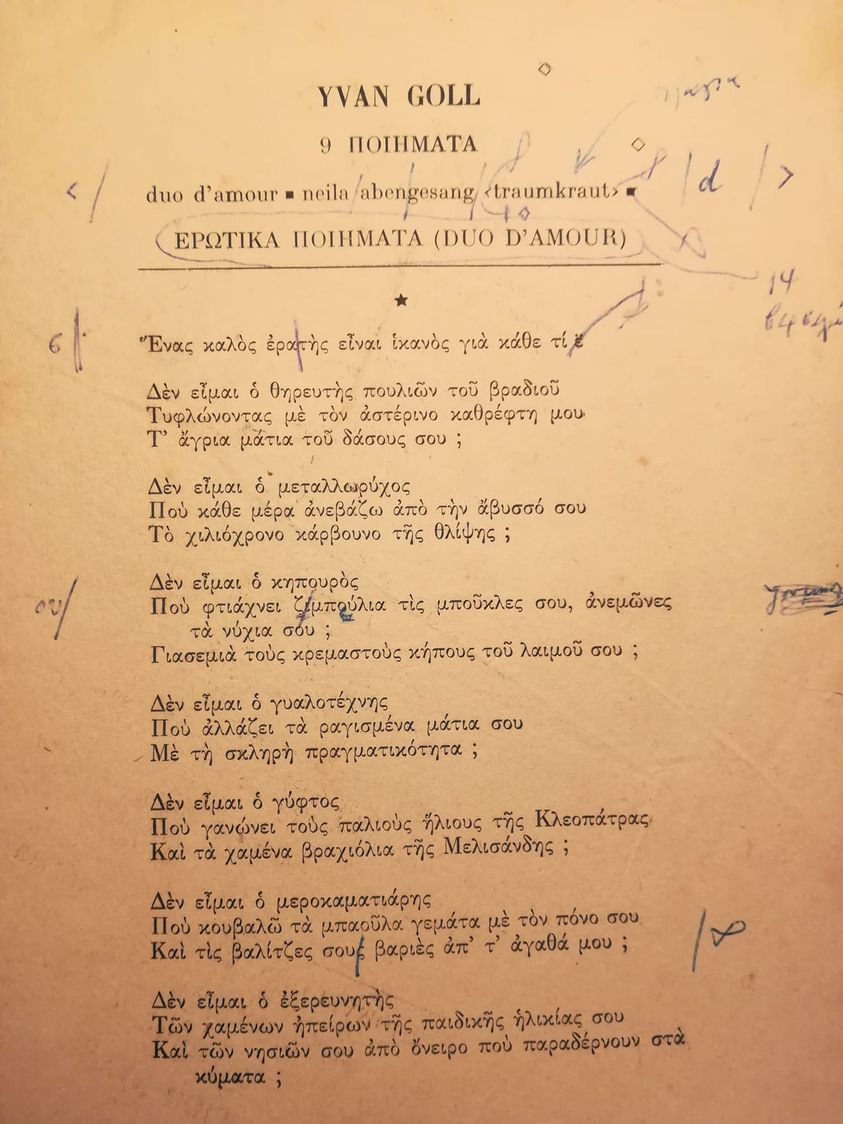 YVAN GOLL
9 ΠΟΙΗΜΑΤΑ
duo d'amour ▪ neila abengesang ‹traumkraut› ▪
ΕΡΩΤΙΚΑ ΠΟΙΗΜΑΤΑ (DUO D'AMOUR)
★
Ἕνας καλὸς ἐρατὴς εἶναι ἱκανὸς γιὰ κάθε τί
Δὲν εἶμαι ὁ θηρευτὴς πουλιῶν τοῦ βραδιοῦ
Τυφλώνοντας μὲ τὸν ἀστέρινο καθρέφτη μου
Τ' ἄγρια μάτια τοῦ δάσους σου ;
Δὲν εἶμαι ὁ μεταλλωρύχος
Ποὺ κάθε μέρα ἀνεβάζω ἀπὸ τὴν ἄβυσσό σου
Τὸ χιλιόχρονο κάρβουνο τῆς θλίψης ;
Δὲν εἶμαι ὁ κηπουρὸς
Ποὺ φτιάχνει ζιμπούλια τὶς μποῦκλες σου, ἀνεμῶνες
τὰ νύχια σου ;
Γιασεμιὰ τοὺς κρεμαστοὺς κήπους τοῦ λαιμοῦ σου ;
Δὲν εἶμαι ὁ γυαλοτέχνης
Ποὺ ἀλλάζει τὰ ραγισμένα μάτια σου
Μὲ τὴ σκληρὴ πραγματικότητα ;
Δὲν εἶμαι ὁ γύφτος
Ποὺ γανώνει τοὺς παλιοὺς ἥλιους τῆς Κλεοπάτρας
Καὶ τὰ χαμένα βραχιόλια τῆς Μελισάνδης ;
Δὲν εἶμαι ὁ μεροκαματιάρης
Ποὺ κουβαλῶ τὰ μπαοῦλα γεμάτα μὲ τὸν πόνο σου
Καὶ τὶς βαλίτζες σου βαριὲς ἀπ' τ' ἀγαθά μου ;
Δὲν εἶμαι ὁ ἐξερευνητὴς
Τῶν χαμένων ἠπείρων τῆς παιδικῆς ἡλικίας σου
Καὶ τῶν νησιῶν σου ἀπὸ ὄνειρο ποὺ παραδέρνουν στὰ
κύματα ;
d
14
σ
ου